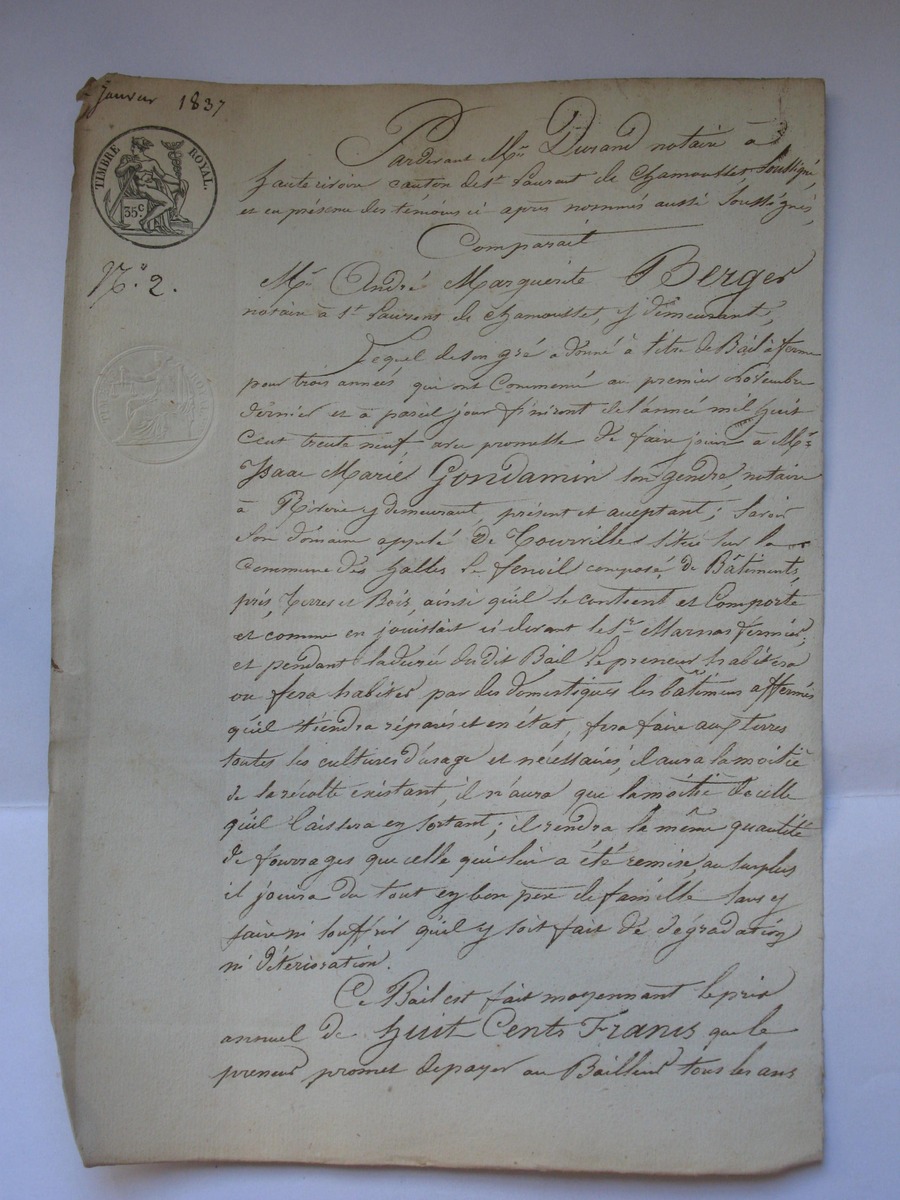 Janvier 1837
TIMBRE ROYAL.
35c
N.o 2.
Pardevant Me. Durand notaire à
hauterivoire canton de St. Laurent de Chamousset, Soussigné,
et en présence des témoins ci-après nommés aussi Soussignés,
Comparait
Mr. André Marguerite Berger
notaire à St. Laurent de chamousset, y demeurant,
Lequel de son gré a donné à titre de Bail à ferme
pour trois années qui ont Commencé au premier Novembre
dernier et à pareil jour finiront de l'année mil huit
Cent trente neuf, avec promesse de faire jouir à Mr.
Isaac Marie Gondamin son gendre, notaire
à Riverie y demeurant, présent et acceptant; Savoir
Son domaine appelé De Tourville situé sur la
Commune des halles le fenoil composé de Bâtiments,
prés, Terres et Bois, ainsi qu'il se contient et Comporte
et comme en jouissait ci devant le Sr. Marnas fermier;
et pendant la durée du dit Bail le preneur habitera
ou fera habiter par des domestiques les bâtimens affermés
qu'il tiendra réparés et en état, fera faire aux Terres
toutes les cultures d'usage et nécessaires, il aura la moitié
de la récolte existant, il n'aura que la moitié de celle
qu'il laissera en sortant; il rendra la même quantité
de fourrages que celle qui lui a été remise, au surplus
il jouira du tout en bon père de famille sans y
faire ni souffrir qu'il y soit fait de dégradation
ni détérioration.
Ce Bail est fait moyennant le prix
annuel de huit Cents Francs que le
preneur promet de payer au Bailleur tous les ans